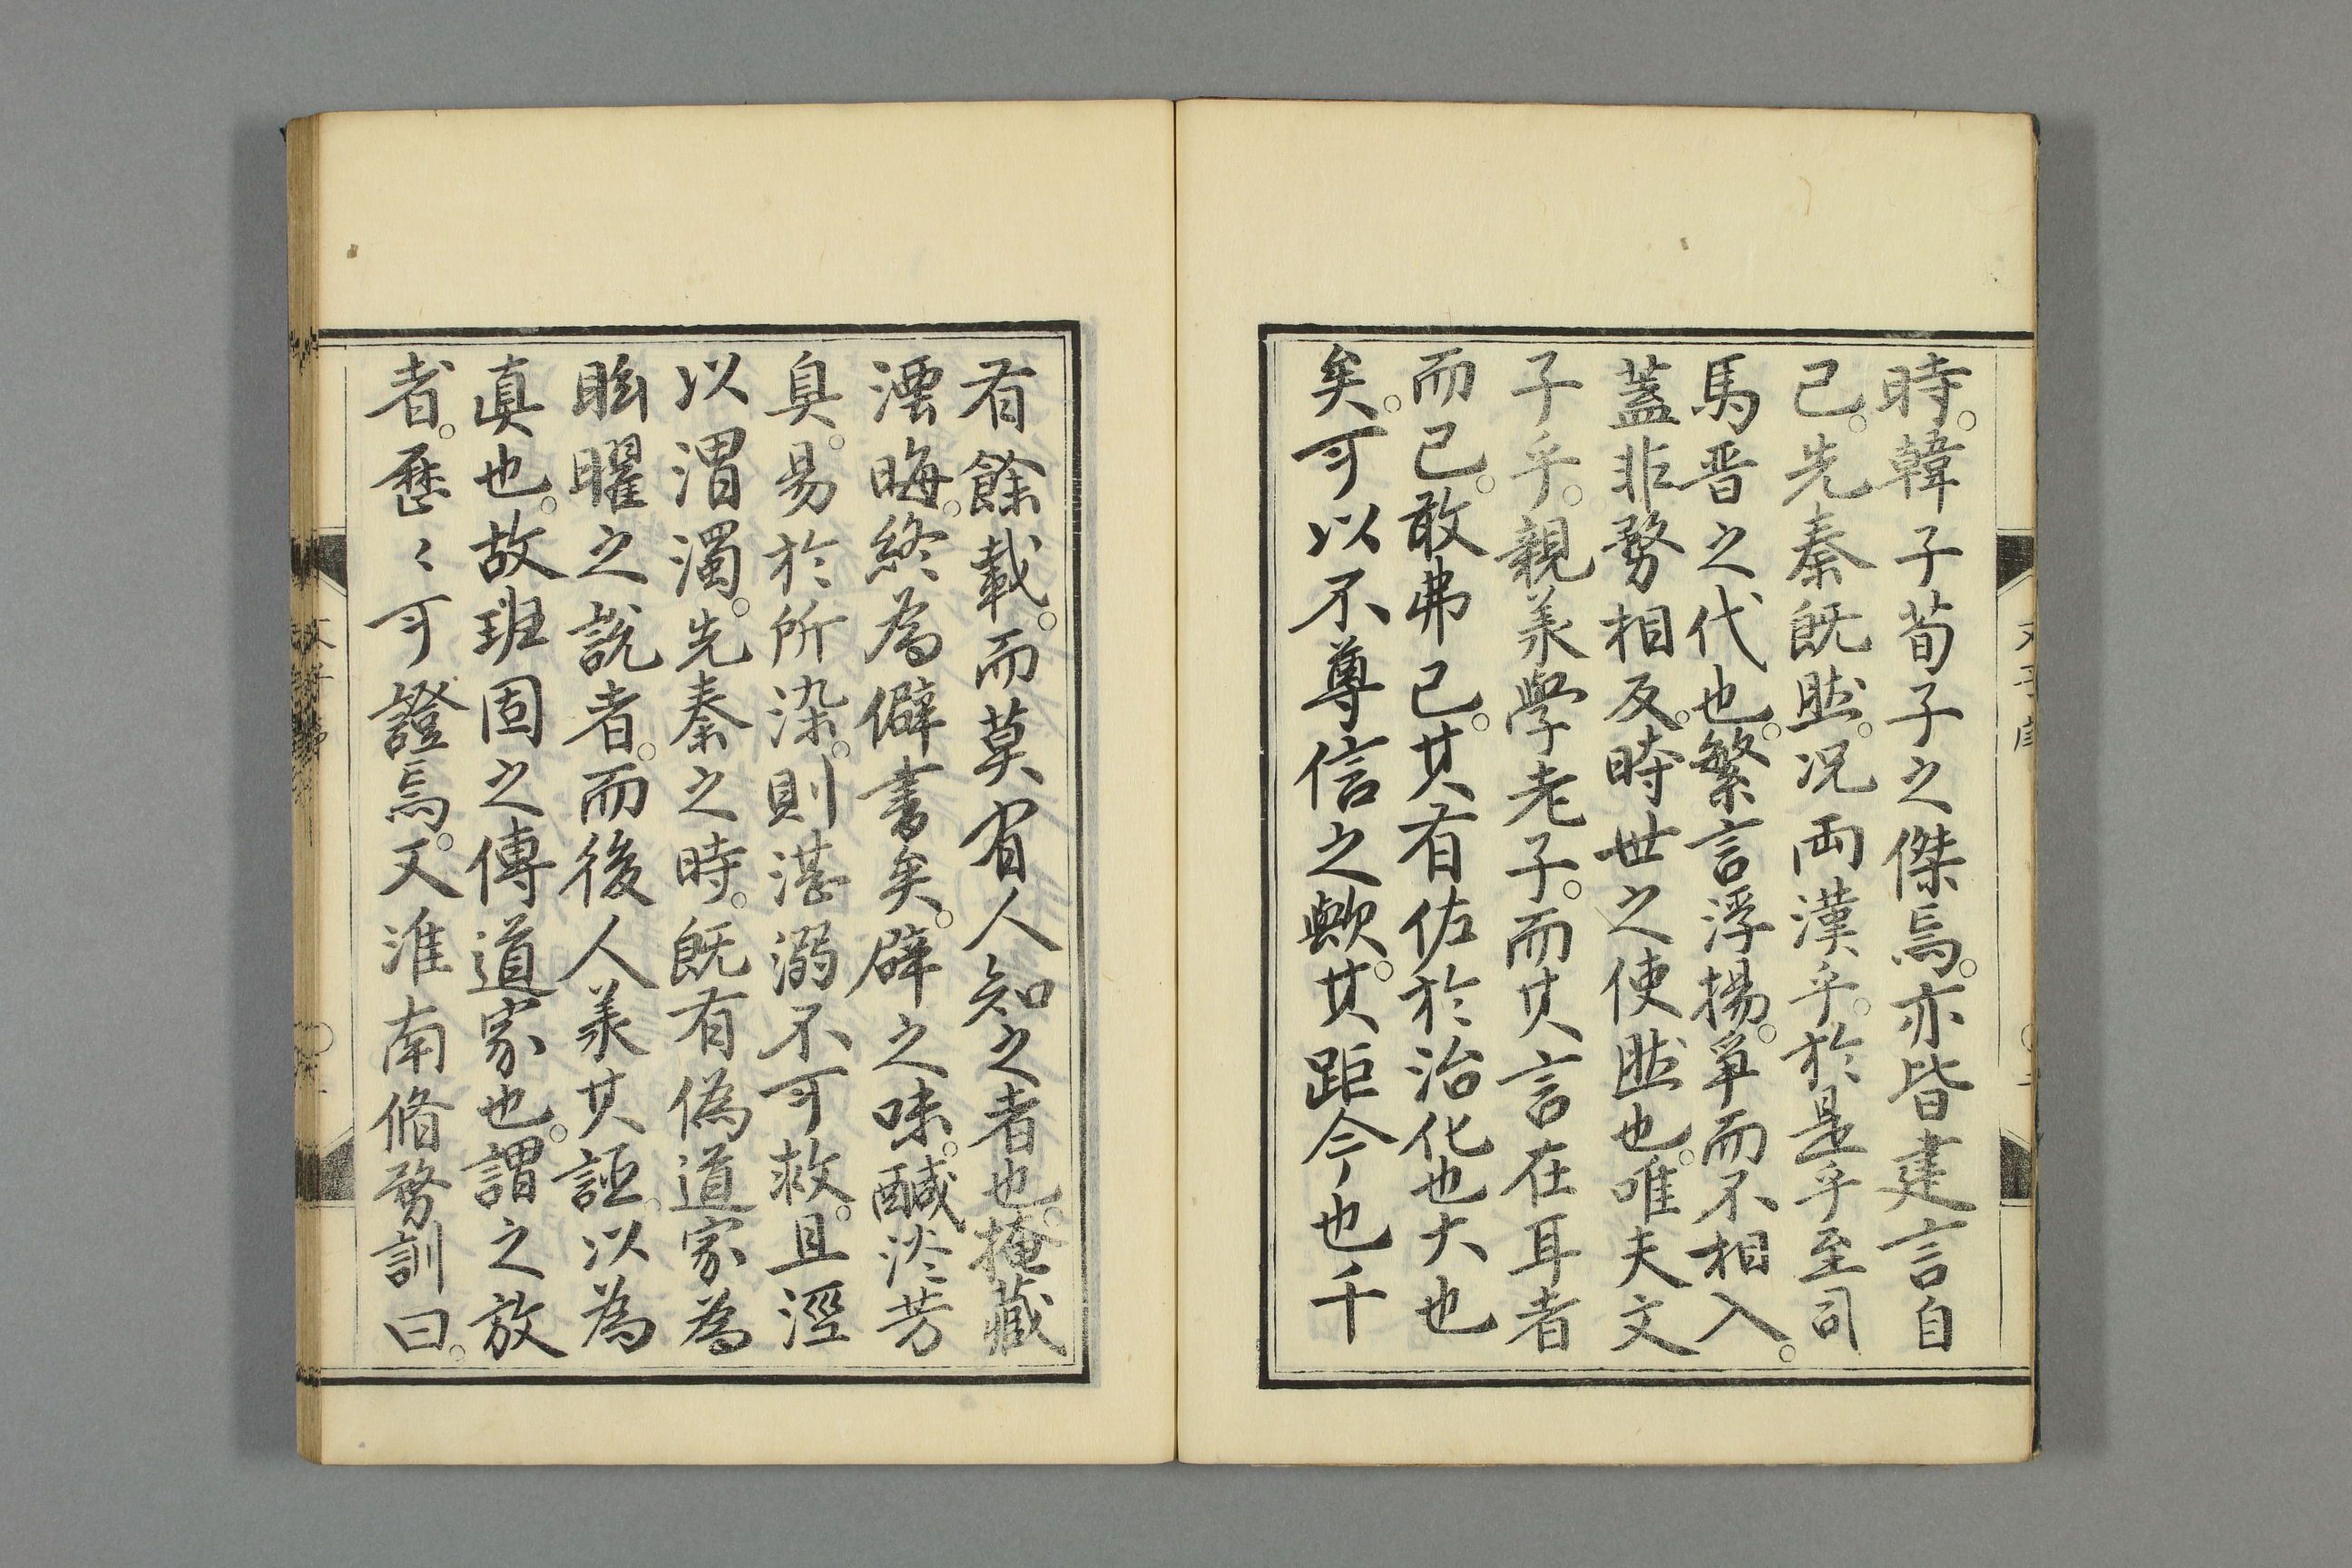 時。韓子荀子之傑焉。亦皆建言自
己。先秦既然。况両漢乎。於是乎至司
馬晋之代也。繁言浮揚。爭而不相入。
蓋非務相反。時世之使然也。唯夫文
子乎。親羕學老子。而其言在耳者
而已。敢弗已。其有佐於治化也大也
矣。可以不尊信之歟。其距今也千
有餘載。而莫有人知之者也。掩藏
湮晦。終為僻書矣。辟之味。醎淡芳
臭。易於所染。則湛溺不可救。且涇
以渭濁。先秦之時。既有偽道家為
眩曜之說者。而後人羕其誣。以為
真也。故班固之傳道家也。謂之放
者。歷〻可證焉。又淮南脩務訓曰。